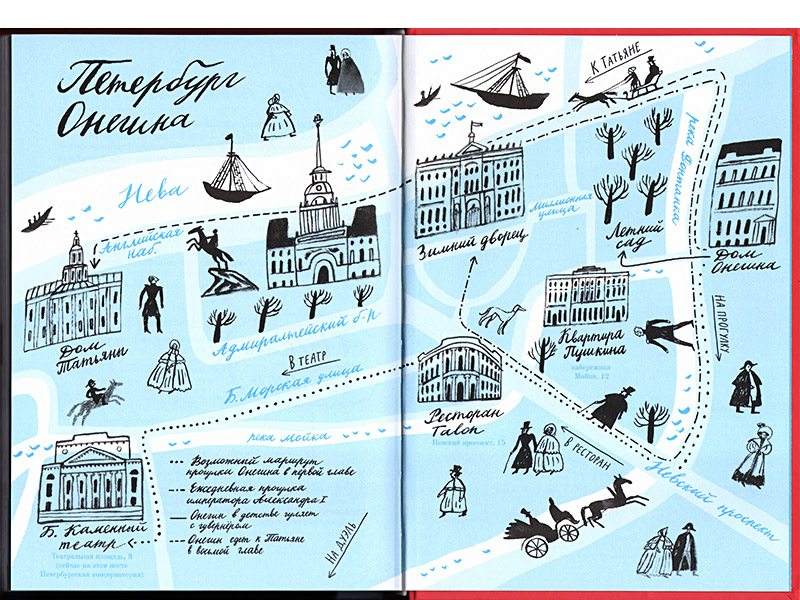 Петербург
Онегина
Нева
Английская
наб.
Дом
Татьяны
Адмиралтейский б-р
В ТЕАТР
Б. Морская улица
река Мойка
Б. Каменный
театр
Театральная площадь, 3
(сейчас на этом месте
Петербургская консерватория)
Возможный маршрут
прогулки Онегина в первой главе
Ежедневная прогулка
императора Александра I
Онегин в детстве гуляет
с гувернёром
Онегин едет к Татьяне
в восьмой главе
НА ДУЭЛЬ
К ТАТЬЯНЕ
река Фонтанка
Миллионная
улица
Зимний дворец
Летний
сад
Дом
Онегина
НА ПРОГУЛКУ
Квартира
Пушкина
набережная
Мойки, 12
Ресторан
Talon
Невский проспект, 15
В РЕСТОРАН
Невский проспект